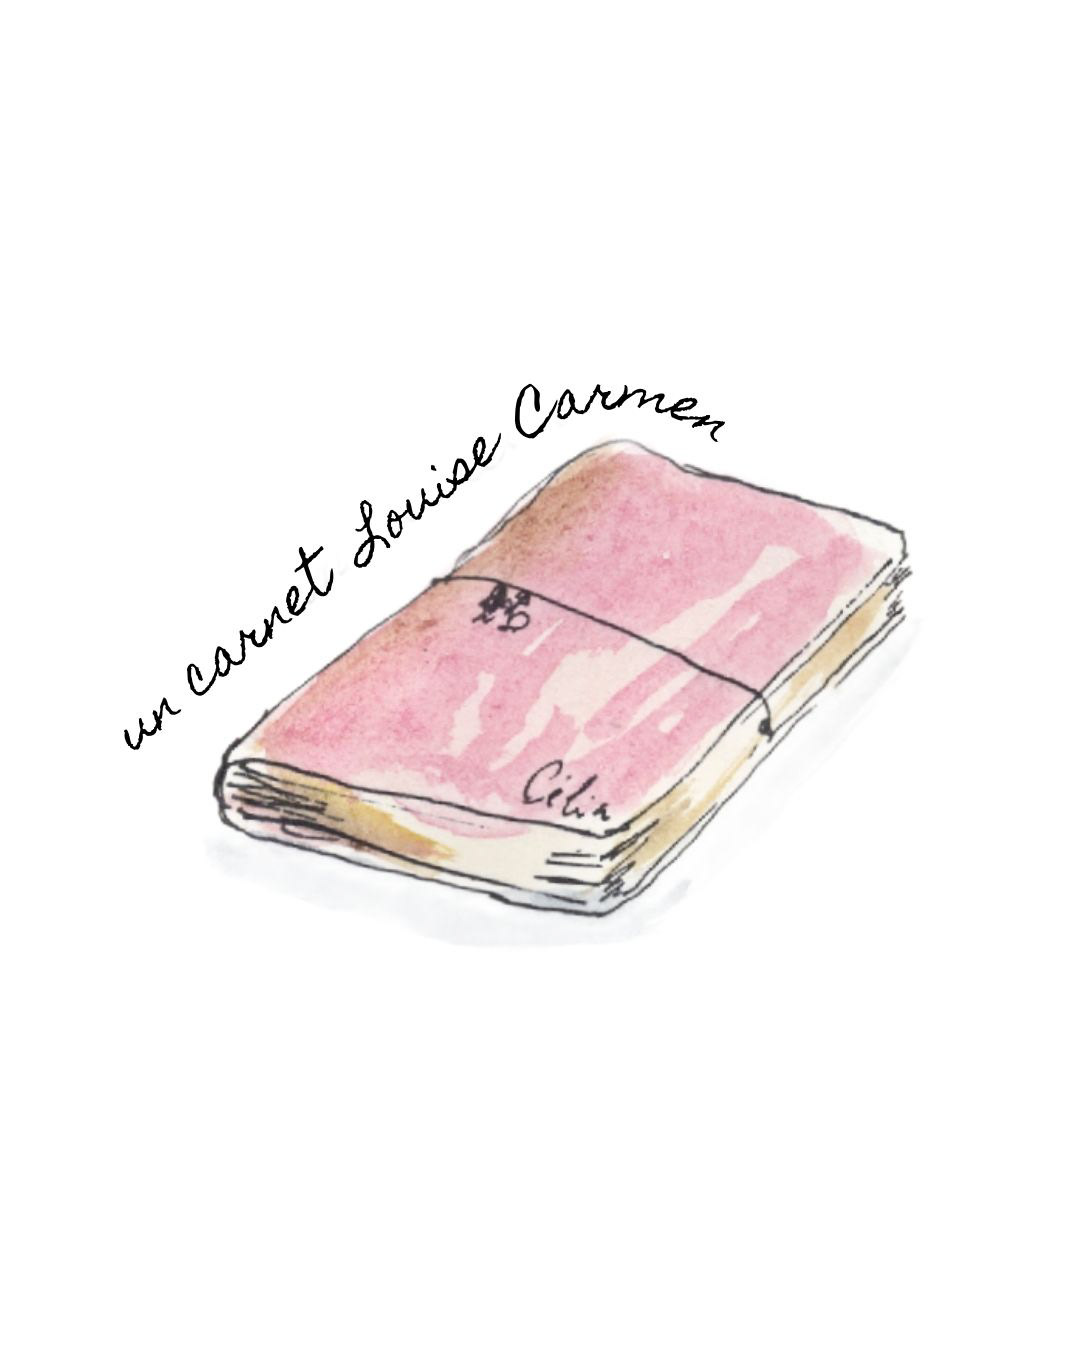 un carnet Louise Carmen
Célia